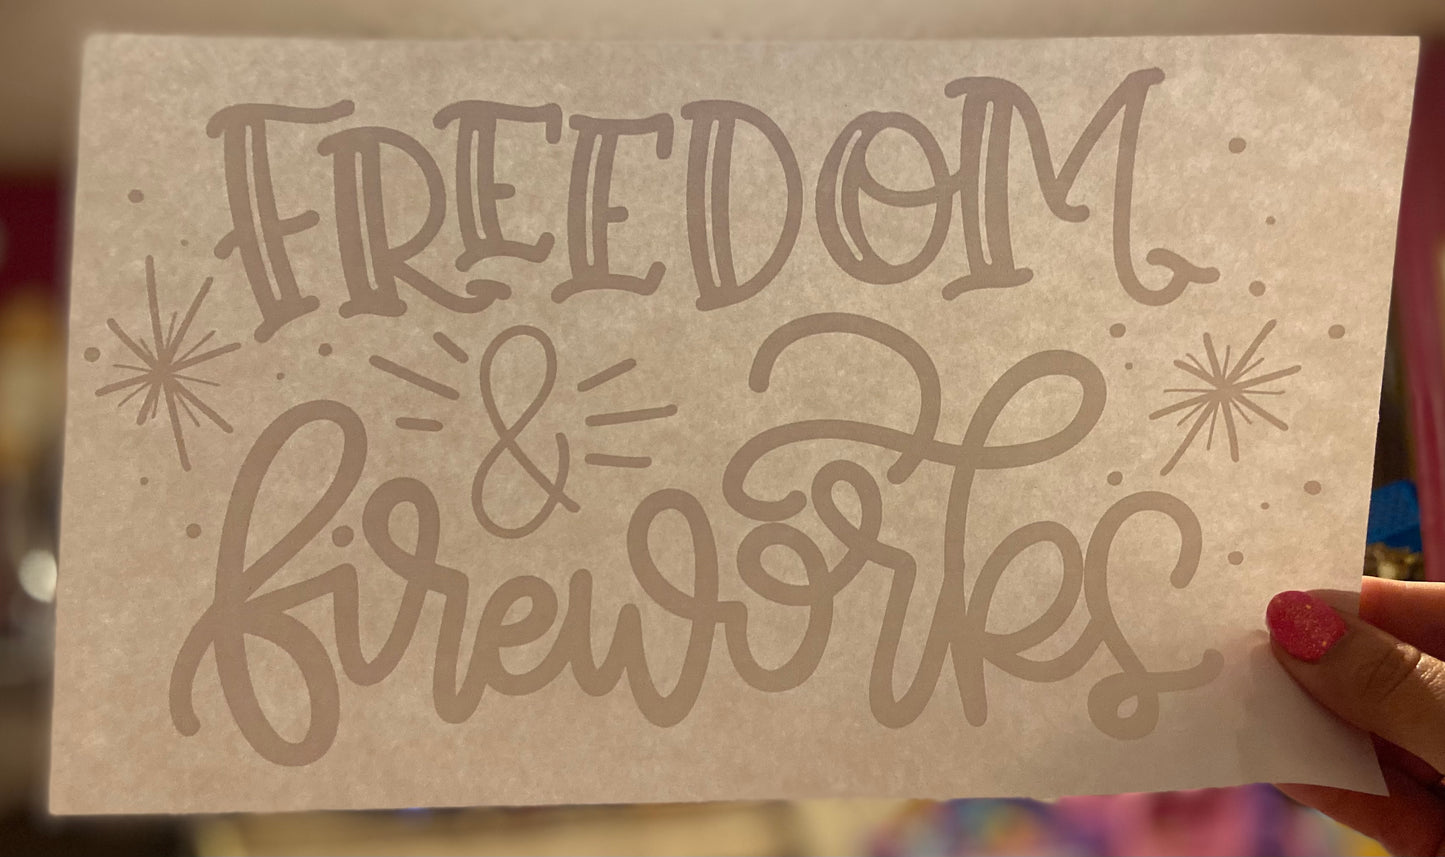 FREEDOM
&
fireworks